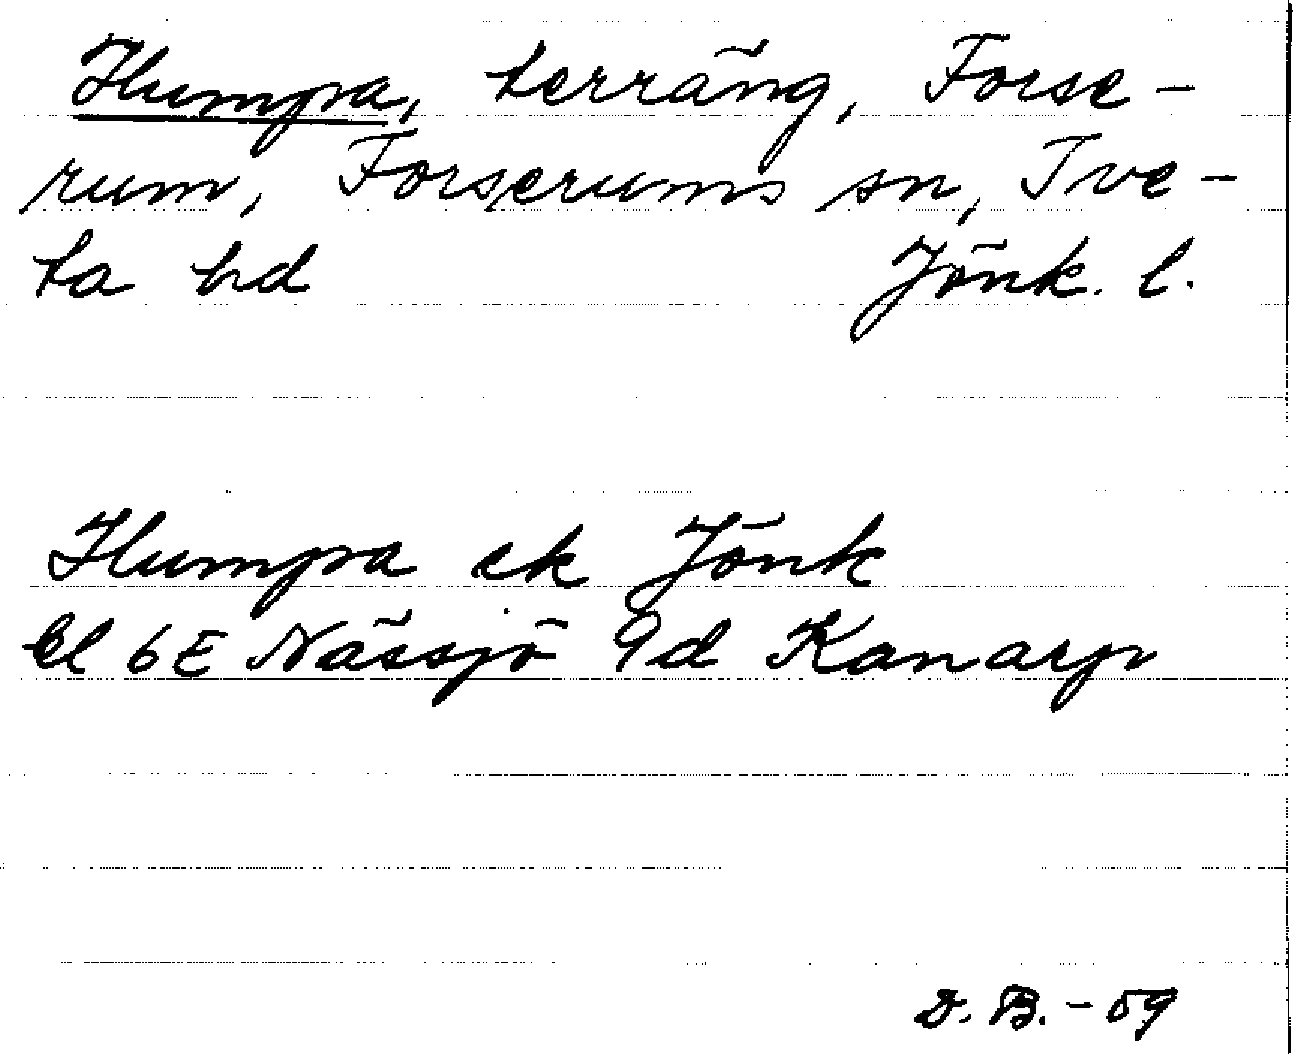 Humpa, terräng, Forse-
rum, Forserums sn, Tve-
ta hd Jönk. l.
Humpa ek Jönk
bl 6E Nässjö 9d Kanarp
D. B. - 59